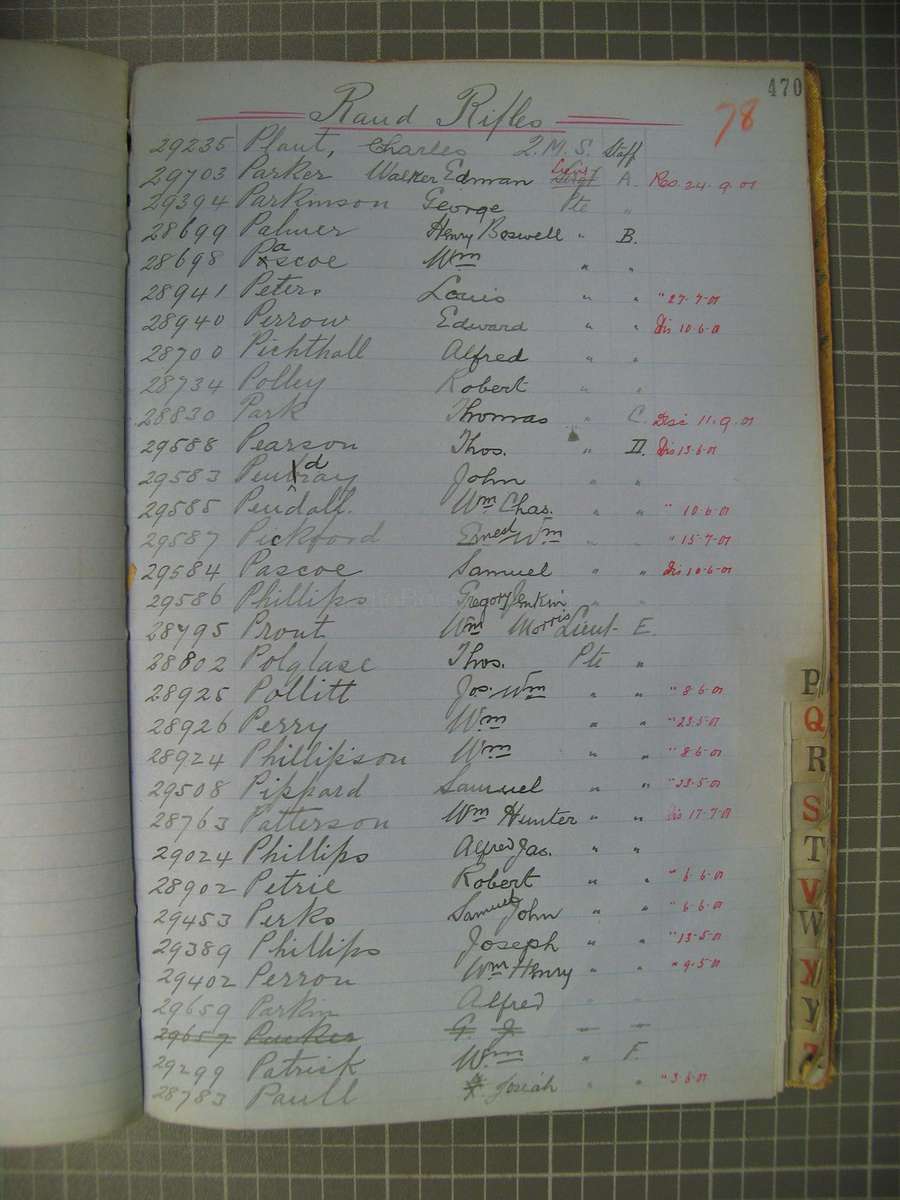 470
78
Rand Rifles
29235 Plant, Charles Q.M.S. Staff
29703 Parker Walker Edman Lieut Sergt A. Res. 24.9.01
29394 Parkinson George Pte "
28699 Palmer Henry Boswell " B.
28698 Pascoe Wm " "
28941 Peters Louis " " " 27-7-01
28940 Perrow Edward " " Dis 10.6.01
28700 Pichthall Alfred " "
28734 Polley Robert " "
28830 Park Thomas " C. Desc 11.9.01
29588 Pearson Thos. " D. Dis 13-6-01
29583 John " "
29585 Pendall. Wm Chas. " " " 10-6-01
29587 Pickford Ernest Wm " " " 15-7-01
29584 Pascoe Samuel " " Dis 10-6-01
29586 Phillips Gregory Jenkin " "
28795 Prout Wm Morris Lieut- E.
28802 Polglase Thos. Pte "
28925 Pollitt Jos. Wm " " " 8-6-01
28926 Perry Wm " " " 23-5-01
28924 Phillipson Wm " " " 8-6-01
29508 Pippard Samuel " " " 23-5-01
28763 Patterson Wm Hunter " " Dis 17-7-01
29024 Phillips Alfred Jas. " "
28902 Petrie Robert " " " 6-6-01
29453 Perks Samuel John " " " 6-6-01
29389 Phillips Joseph " " " 13-5-01
29402 Perron Wm Henry " " " 9.5-01
29659 Parkin Alfred " "
29657 G. J. " "
29299 Patrick Wm " F.
28783 Paull Josiah " " " 3-6-01
P
Q
R
S
T
V
W
X
Y
Z